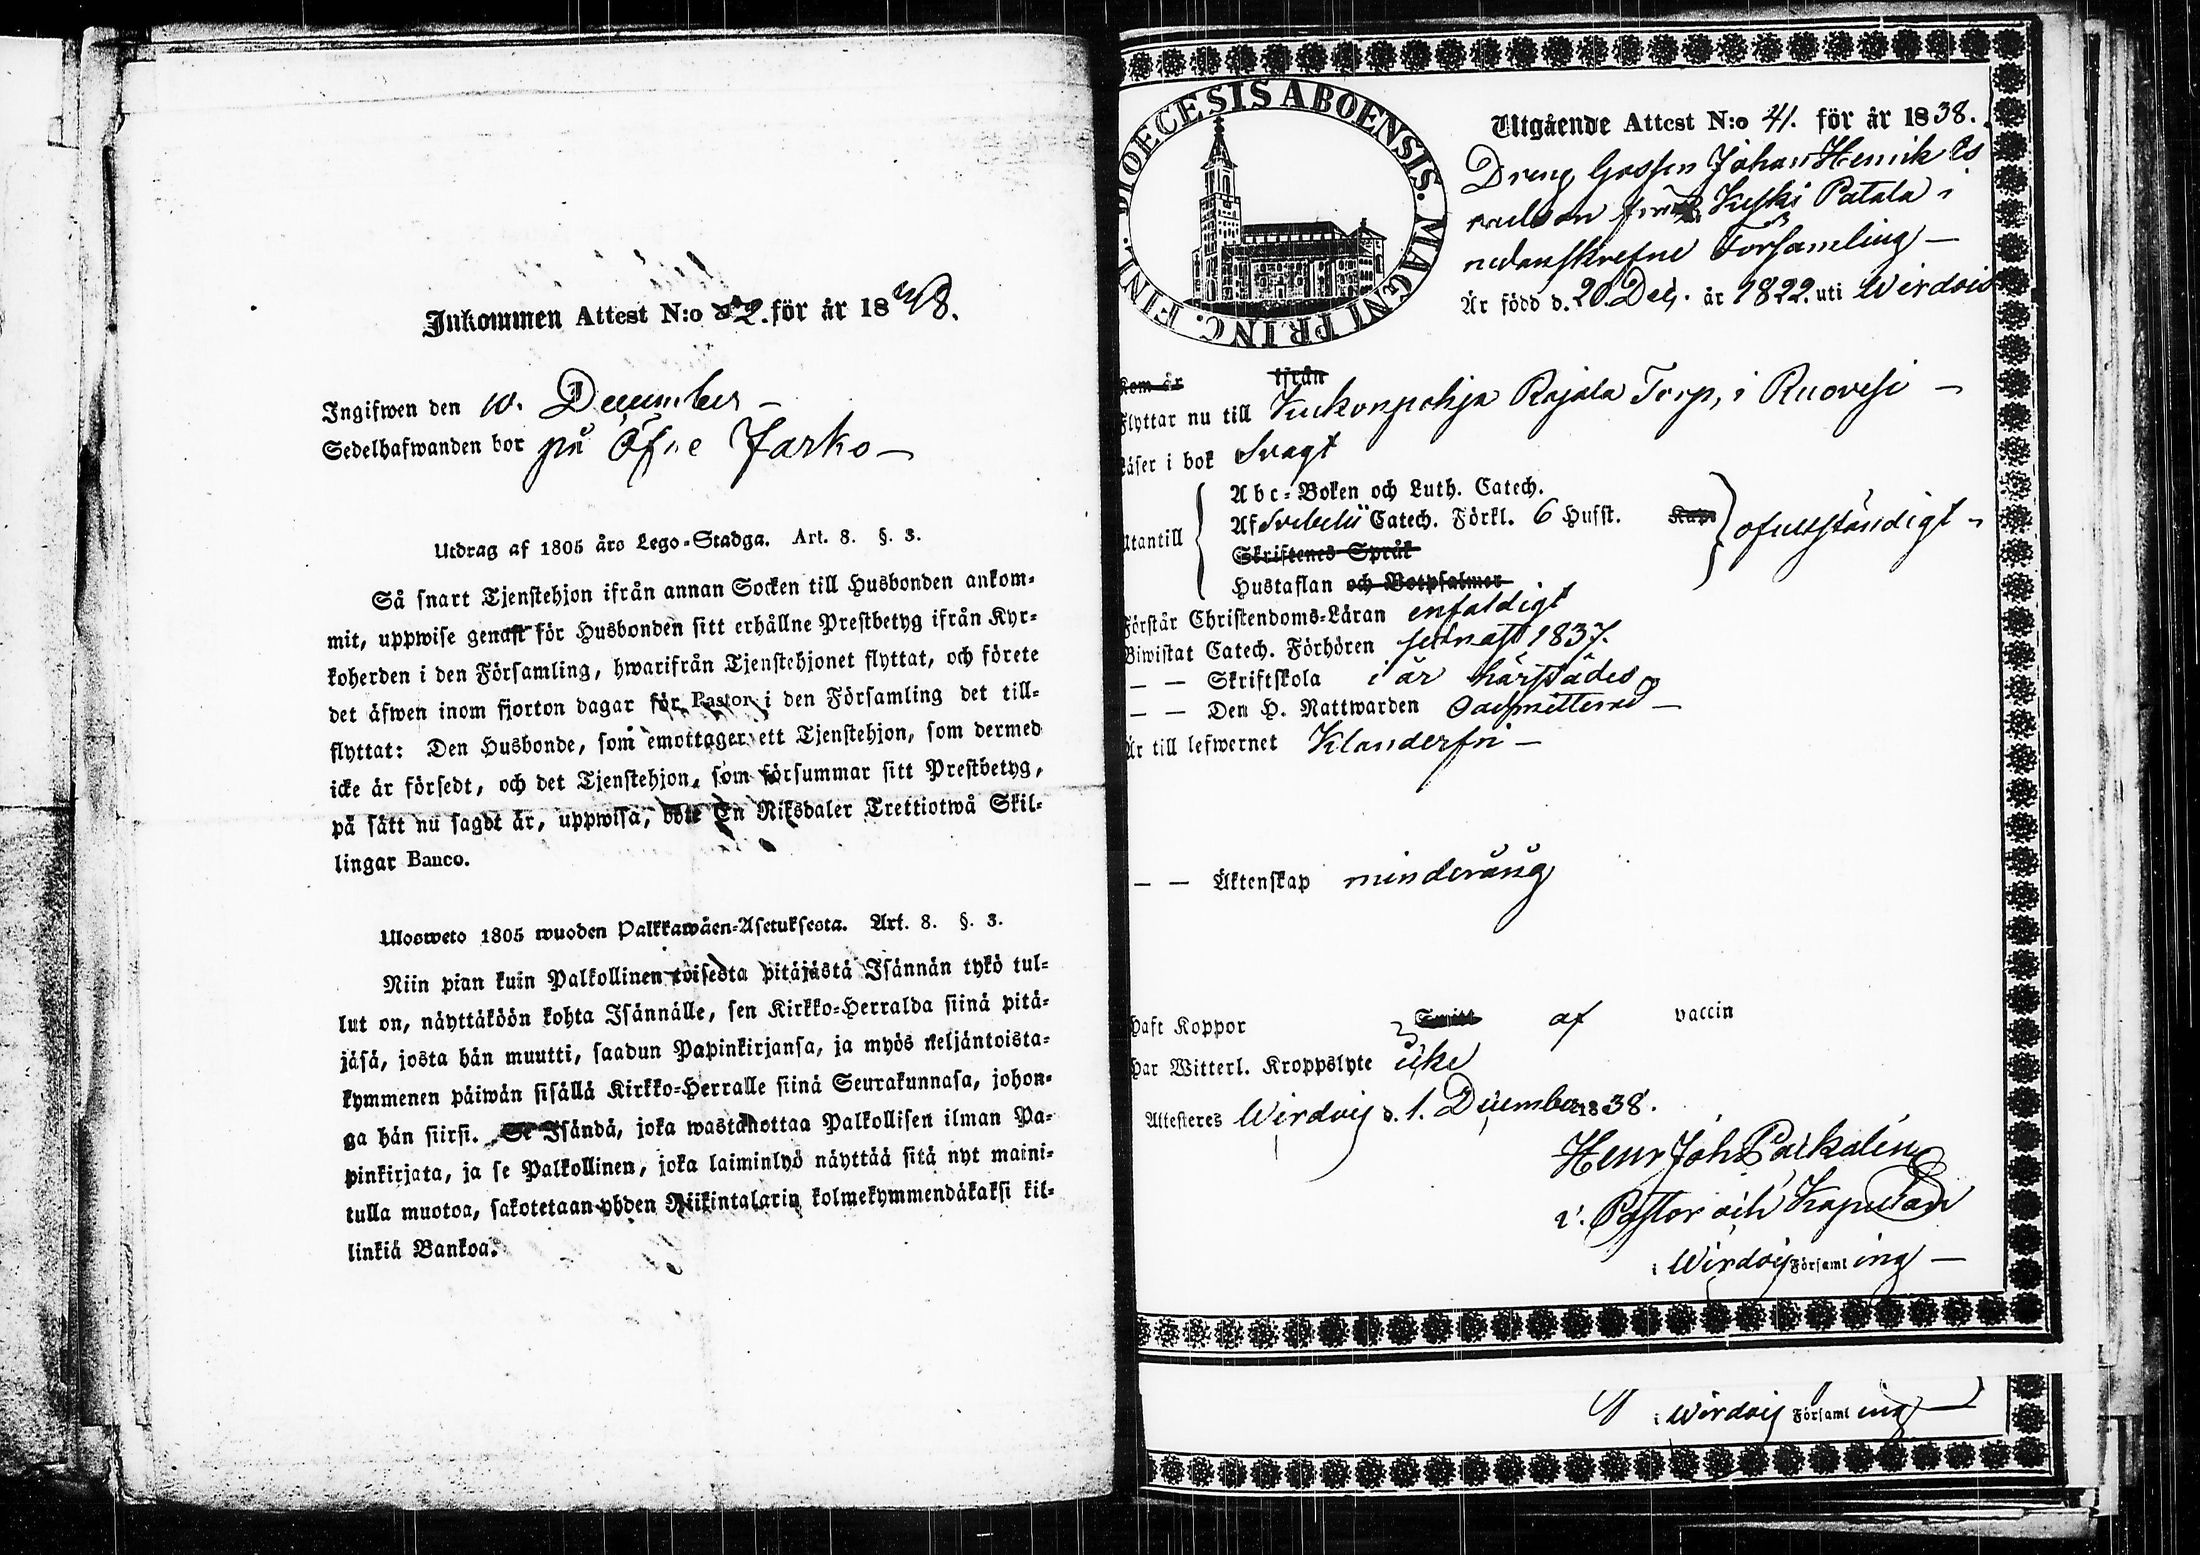 Inkommen Attest N:o 52. för år 1838.
Ingifwen den 10. December –
Sedelhafwanden bor på Öfre Jarko –
Utdrag af 1805 års Lego-Stadga. Art. 8. §. 3.
Så snart Tjenstehjon ifrån annan Socken till Husbonden ankom-
mit, uppwise genast för Husbonden sitt erhållne Prestbetyg ifrån Kyr-
koherden i den Församling, hwarifrån Tjenstehjonet flyttat, och förete
det äfwen inom fjorton dagar för Pastor i den Församling det till-
flyttat: Den Husbonde, som emottager ett Tjenstehjon, som dermed
icke är försedt, och det Tjenstehjon, som försummar sitt Prestbetyg,
på sätt nu sagdt är, uppwisa, böte En Riksdaler Trettiotwå Skil-
lingar Banco.
Ulosweto 1805 wuoden Palkkawäen-Asetuksesta. Art. 8. §. 3.
Niin pian kuin Palkollinen toisesta pitäjästä Isännän tykö tul-
lut on, näyttäköön kohta Isännälle, sen Kirkko-Herralda siinä pitä-
jäsä, josta hän muutti, saadun Papinkirjansa, ja myös neljäntoista-
kymmenen päiwän sisällä Kirkko-Herralle siinä Seurakunnasa, johon-
ga hän siirsi. Se Isändä, joka wastanottaa Palkollisen ilman Pa-
pinkirjata, ja se Palkollinen, joka laiminlyö näyttää sitä nyt maini-
tulla muotoa, sakotetaan yhden Riikintalarin kolmekymmendäkaksi kil-
linkiä Bankoa.
DIOECESIS ABOENSIS. MAGNI PRINC. FINL.
Utgående Attest N:o 41. för år 1838.
Dreng Gossen Johan Henrik Es
raelsson från Kuski Patala i
nedanskrefne Församling –
Är född d. 20 Dec. år 1822. uti Wirdois
Kom år ifrån
Flyttar nu till Kukonpohja Rajala Torp, i Ruovesi –
Läser i bok Svagt
Utantill
Abc-Boken och Luth. Catech.
Af Svebelii Catech. Förkl. 6 Hufst. Kap.
Skriftenes Språk
Hustaflan och Botpsalmer
ofullständigt –
Förstår Christendoms-Läran enfaldigt
Biwistat Catech. Förhören sednast 1837.
– – Skriftskola i år härstädes
– – Den H. Nattwarden Oadmitterad –
Är till lefwernet Klanderfri –
– – Äktenskap minderårig
Haft Koppor af vaccin
Har Witterl. Kroppslyte icke
Attesteres Wirdois d. 1. December 1838.
Henr Joh Palkalin
v. Pastor och Kapellan
i Wirdois Församling –
i Wirdois Församling